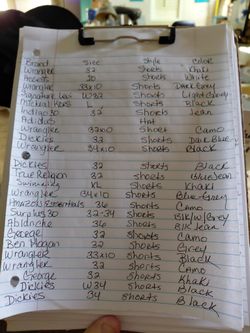 Brand Size Style Color
Wrangler 32 Shorts Khaki
Shorts White
Wrangler 33x10 Shorts Dark Grey
W32 Shorts Light Grey
Micheal Kors L Shorts Black
32 Shorts Jean
Adidas Hat
Wrangler Shorts Camo
Dickies 32 Shorts Dark Blue
Wrangler 34x10 Shorts Black
Dickies 32 Shorts Black
True Religion 32 Shorts Blue Jean
XL Shorts Khaki
Wrangler 34x10 Shorts Blue Grey
36 Shorts Camo
Surplus 30 32-34 Shorts Blk/W/Grey
36 Shorts Blk Jean
George 32 Shorts Camo
Ben Hogan 32 Shorts Grey
Wrangler 33x10 Shorts Black
Wrangler 32 Shorts Camo
George 32 Shorts Khaki
Dickies W34 Shorts Black
Dickies 34 Shorts Black